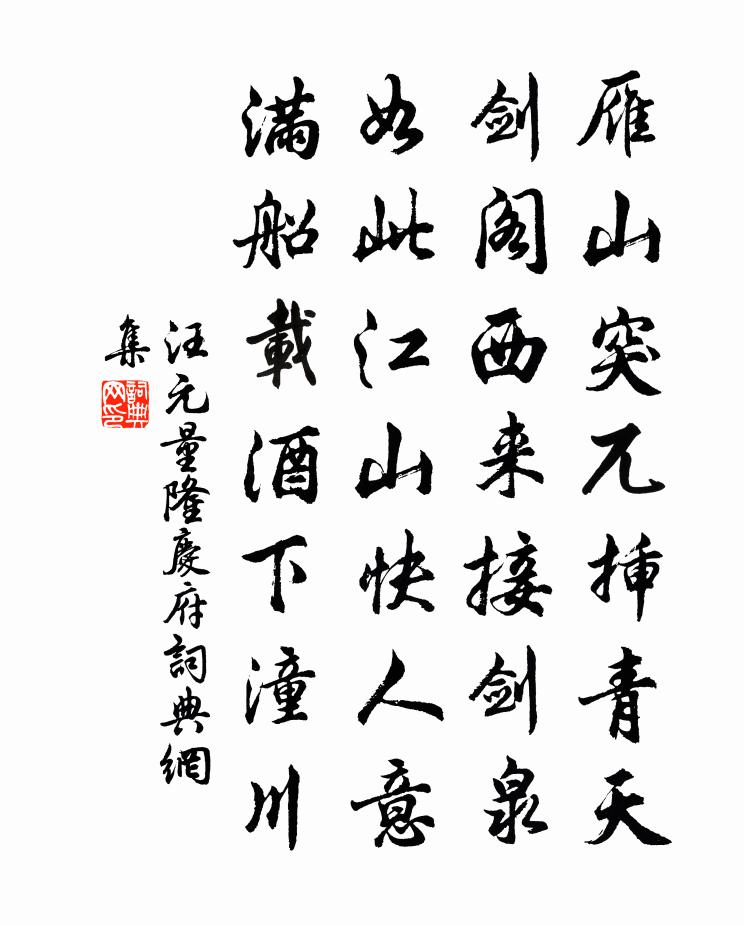 雁山突兀揷青天
剑阁西来接剑泉
如此江山快人意
满船載酒下潼川
汪元量隆慶府詞典網
集
詞典网印